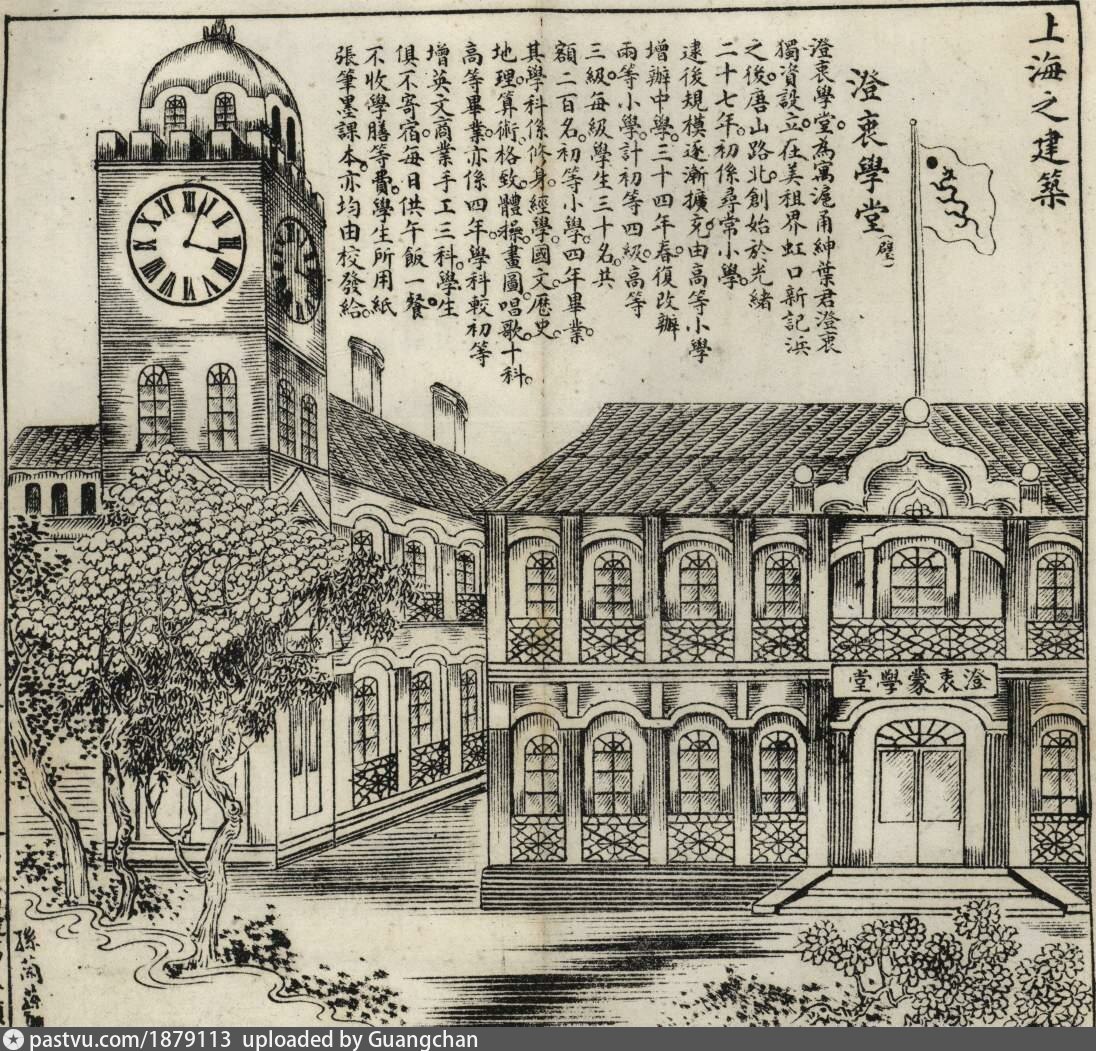 上海之建築
澄衷學堂
(璧)
澄衷學堂。為寓滬甬紳葉君澄衷
獨資設立。在美租界虹口新記浜
之後。唐山路北。創始於光緒
二十七年。初係尋常小學。
逮後規模逐漸擴充。由高等小學
增辦中學。三十四年春。復改辦
兩等小學。計初等四級。高等
三級。每級學生三十名。共
額二百名。初等小學。四年畢業。
其學科係修身。經學。國文。歷史。
地理。算術。格致。體操。畫圖。唱歌。十科。
高等畢業。亦係四年。學科較初等
增英文商業手工三科。學生
俱不寄宿。每日供午飯一餐。
不收學膳等費。學生所用紙
張筆墨課本。亦均由校發給。
澄衷蒙學堂
pastvu.com/1879113 uploaded by Guangchan